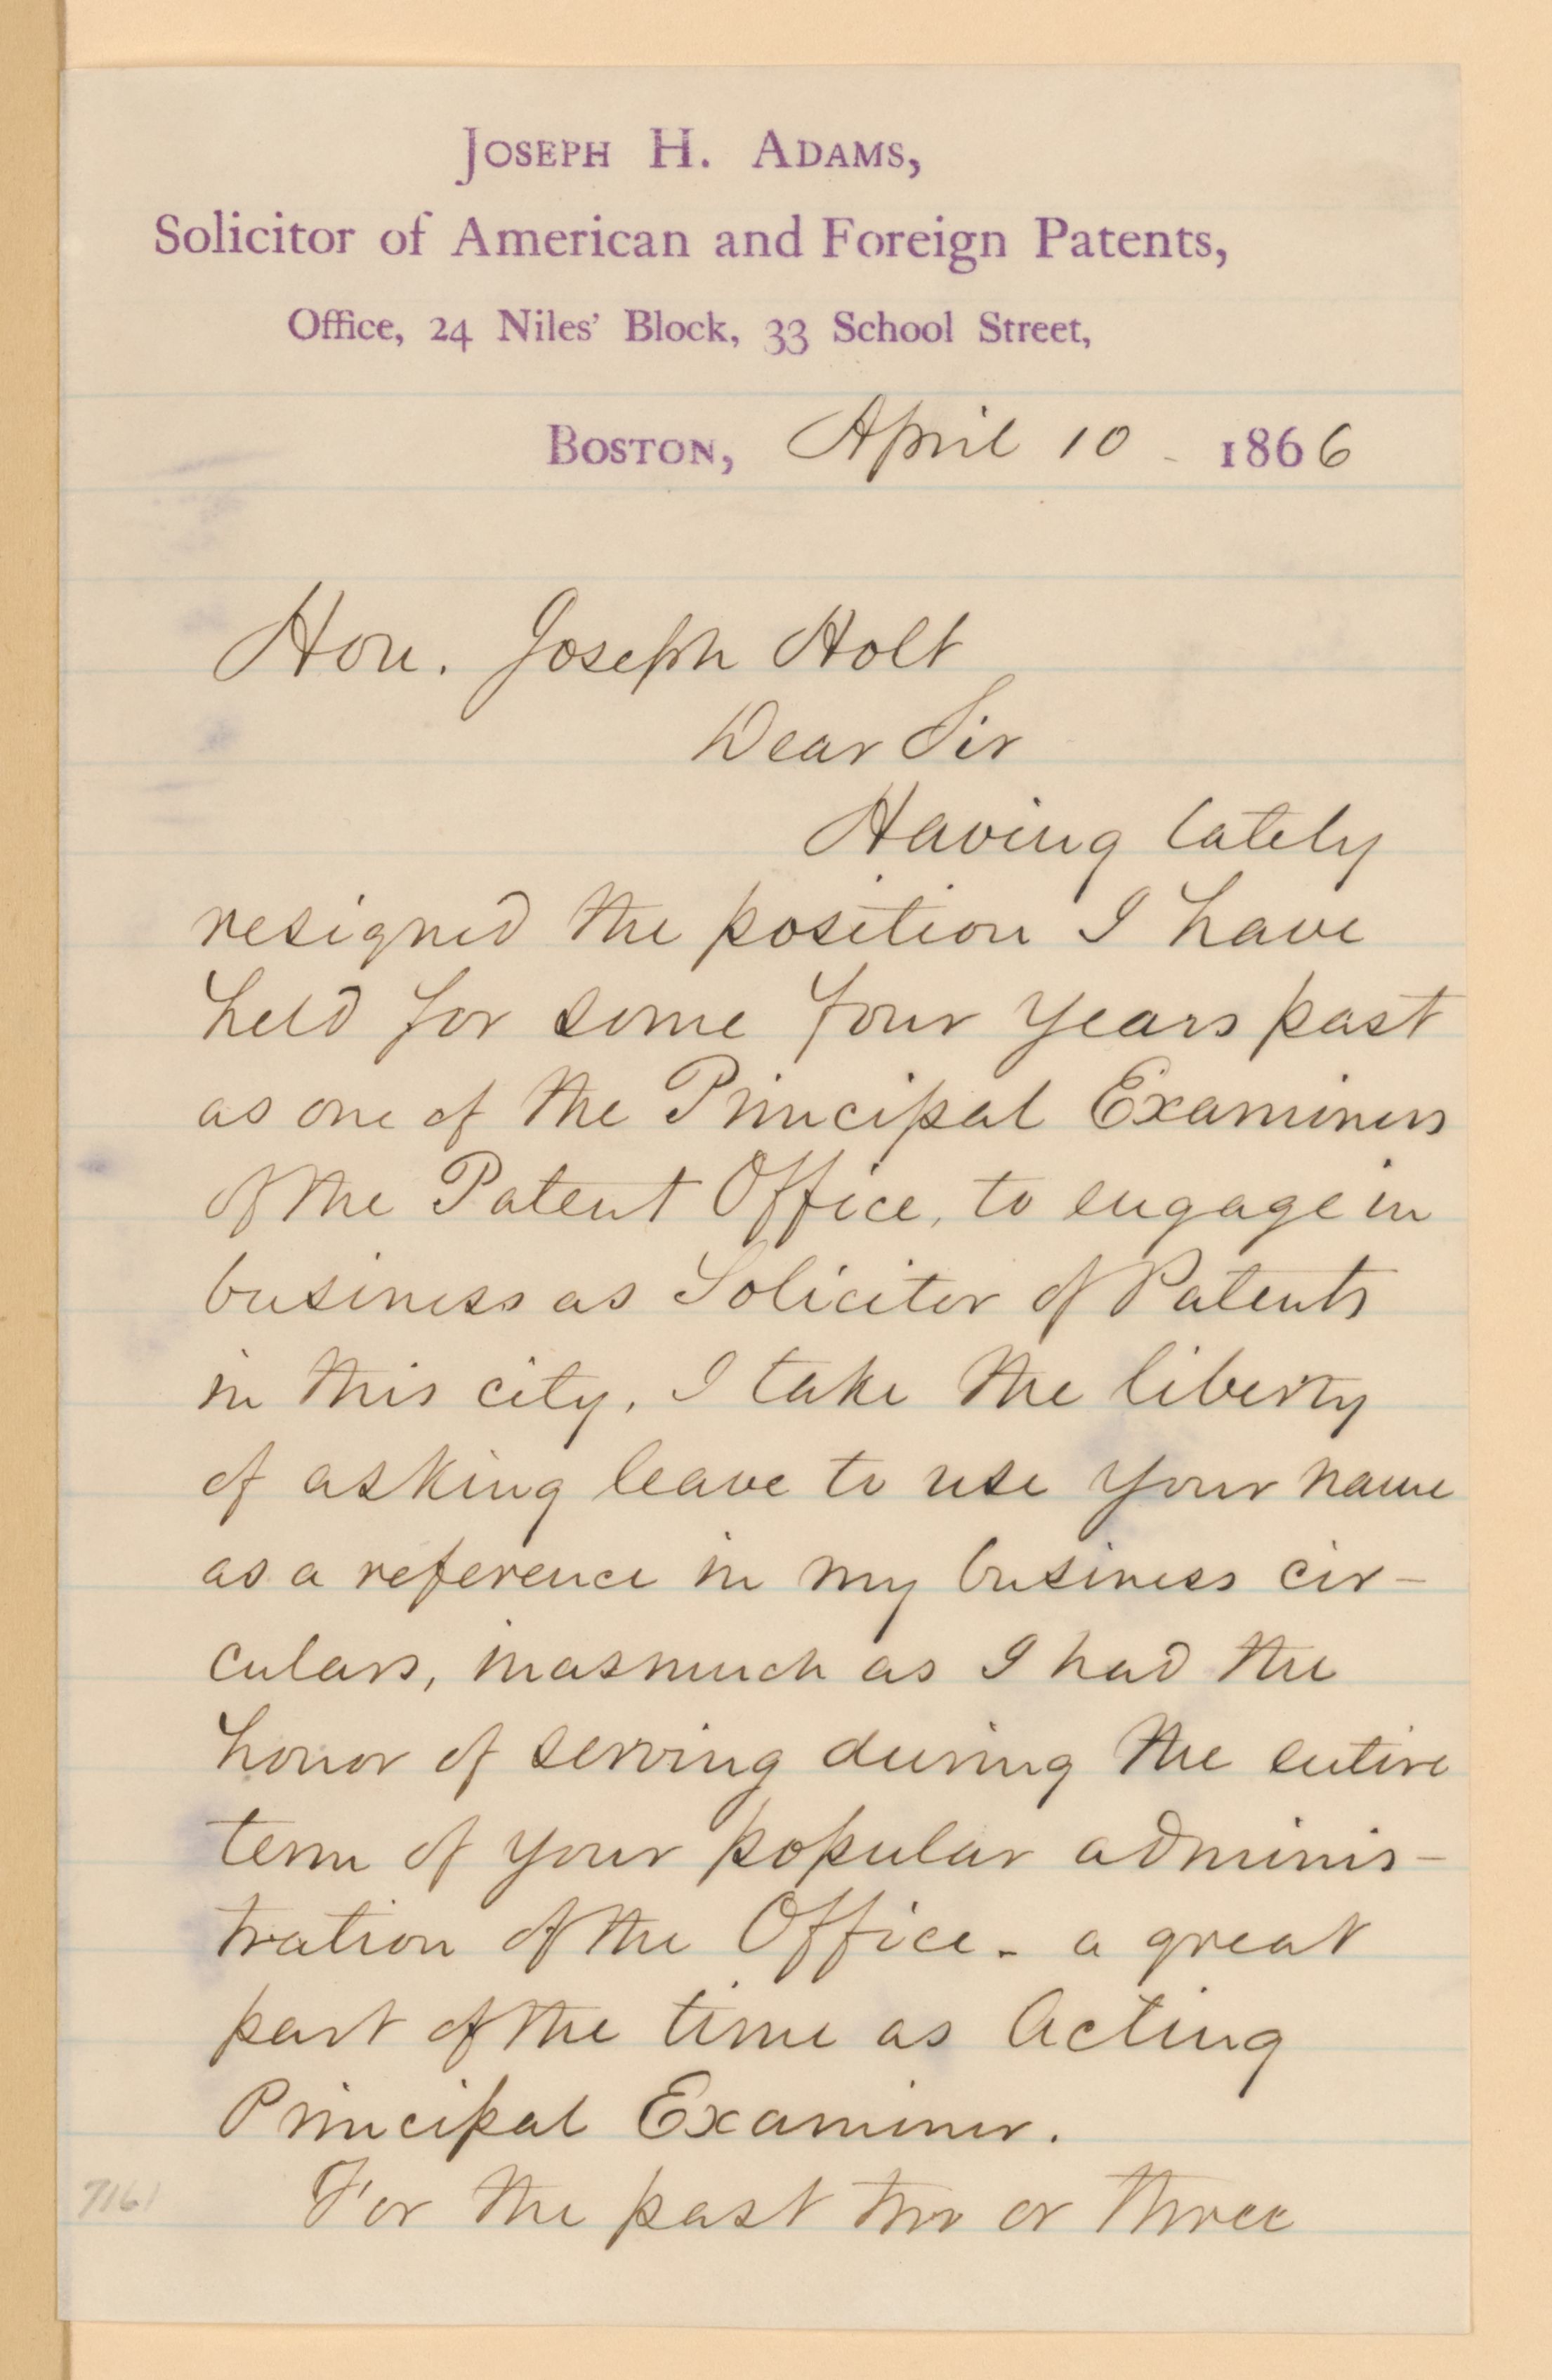 Joseph H. Adams,
Solicitor of American and Foreign Patents,
Office, 24 Niles' Block, 33 School Street,
Boston, April 10 - 1866
Hon. Joseph Holt
Dear Sir
Having lately
resigned the position I have
held for some four years past
as one of the Principal Examiners
of the Patent Office, to engage in
business as Solicitor of Patents
in this city, I take the liberty
of asking leave to use your name
as a reference in my business cir-
culars, inasmuch as I had the
honor of serving during the entire
term of your popular adminis-
tration of the Office - a great
part of the time as Acting
Principal Examiner.
For the past two or three
7161